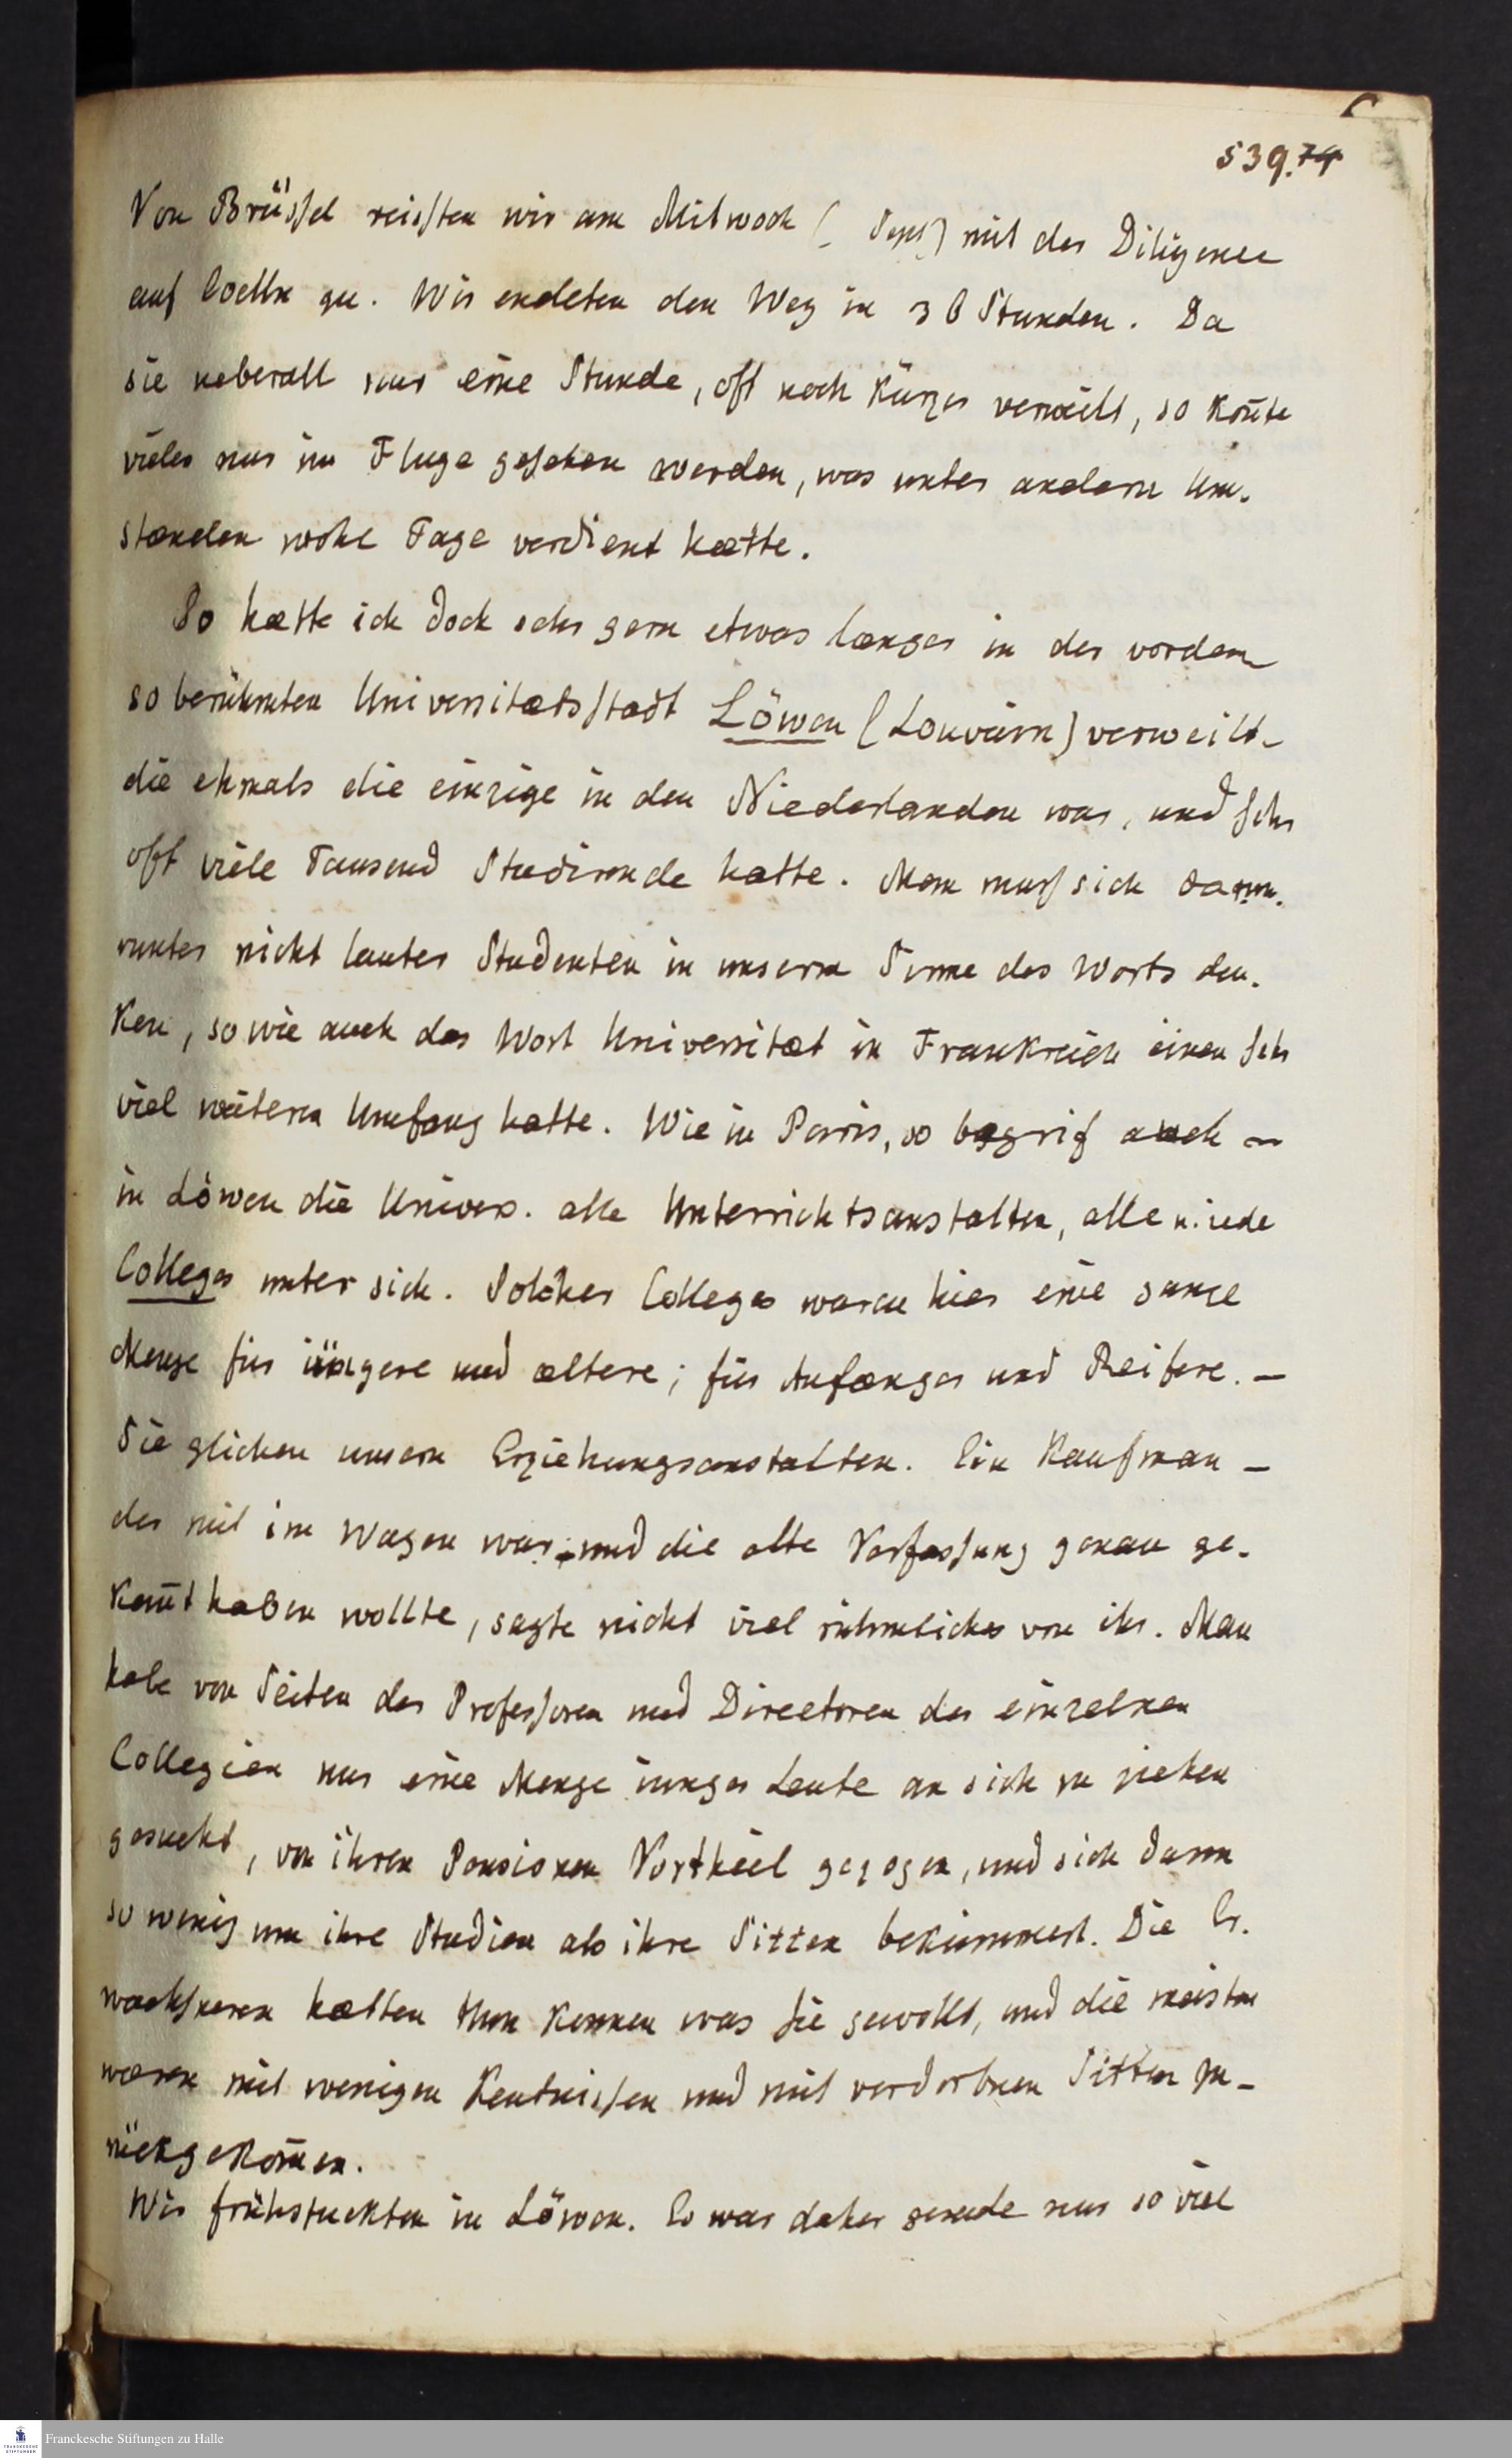 539.74
Von Brüssel reissten wir am Mitwoch (_ Sept) mit der Diligence
auf Coelln zu. Wir endeten den Weg in 36 Stunden. Da
sie ueberall nur eine Stunde, oft noch kürzer verweilt, so kon̄te
vieles nur im Fluge gesehen werden, was unter andern Um-
stænden wohl Tage verdient hætte.
So hætte ich doch sehr gern etwas længer in der vordem
so berühmten Universitætsstadt Löwen (Louvain) verweilt-
die ehmals die einzige in den Niederlanden war, und sehr
oft viele Tausend Studirende hatte. Man muss sich darun-
runter nicht lauter Studenten in unserm Sinne des Worts den-
ken, so wie auch das Wort Universitæt in Frankreich einen sehr
viel weitern Umfang hatte. Wie in Paris, so begrif auch -
in Löwen die Univers. alle Unterrichtsanstalten, alle u. iede
Colleges unter sich. Solcher Colleges waren hier eine ganze
Menge für iüngere und æltere; für Anfænger und Reifere. -
Sie glichen unsern Erziehungsanstalten. Ein Kaufman -
der mit im Wagen war und die alte Verfassung genau ge-
kan̄t haben wollte, sagte nicht viel rühmliches von ihr. Man
habe von Seiten der Professoren und Directoren der einzelnen
Collegien nur eine Menge iunger Leute an sich zu ziehen
gesucht, von ihren Pensionen Vortheil gezogen, und sich dann
so wenig um ihre Studien als ihre Sitten bekümmert. Die Er-
wachsneren hætten thun kennen was sie gewollt, und die meisten
wæren mit wenigen Kentnissen und mit verdorbnen Sitten zu-
rückgekom̄en.
Wir frühstuckten in Löwen. Es war daher gerade nur so viel
Franckesche Stiftungen zu Halle